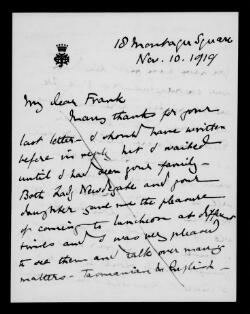 18 Montagu Square
Nov. 10. 1919
My dear Frank
Many thanks for your
last letter - I should have written
before in reply but I waited
until I had seen your family -
Both Lady Newdegate and your
daughter gave me the pleasure
of coming to luncheon at different
times and I was very pleased
to see them and talk over many
matters - Tasmanian & English -